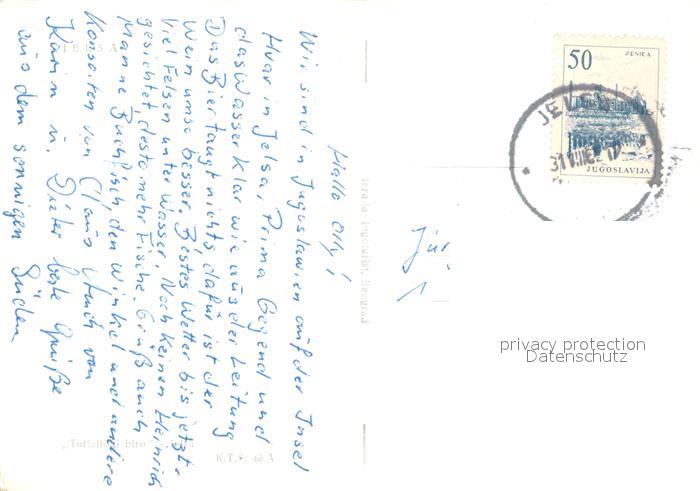 Hallo Olly!
Wir sind in Jugoslawien auf der Insel
Hvar in Jelsa, Prima Gegend und
das Wasser klar wie aus der Leitung
Das Bier taugt nichts dafür ist der
Wein umso besser. Bestes Wetter bis jetzt.
Viel Felsen unter Wasser. Noch keinen Heinrich
gesichtet, desto mehr Fische. Grüß auch
Manne, den Winkel und andere
Konsorten von Claus Auch von
Karin u. Dieter beste Grüße
aus dem sonnigen Süden
JELSA
„Turistički biro" Jelsa
K.T.P. 46 A
Beograd
50
ZENICA
JUGOSLAVIJA
Jür
1
privacy protection
Datenschutz